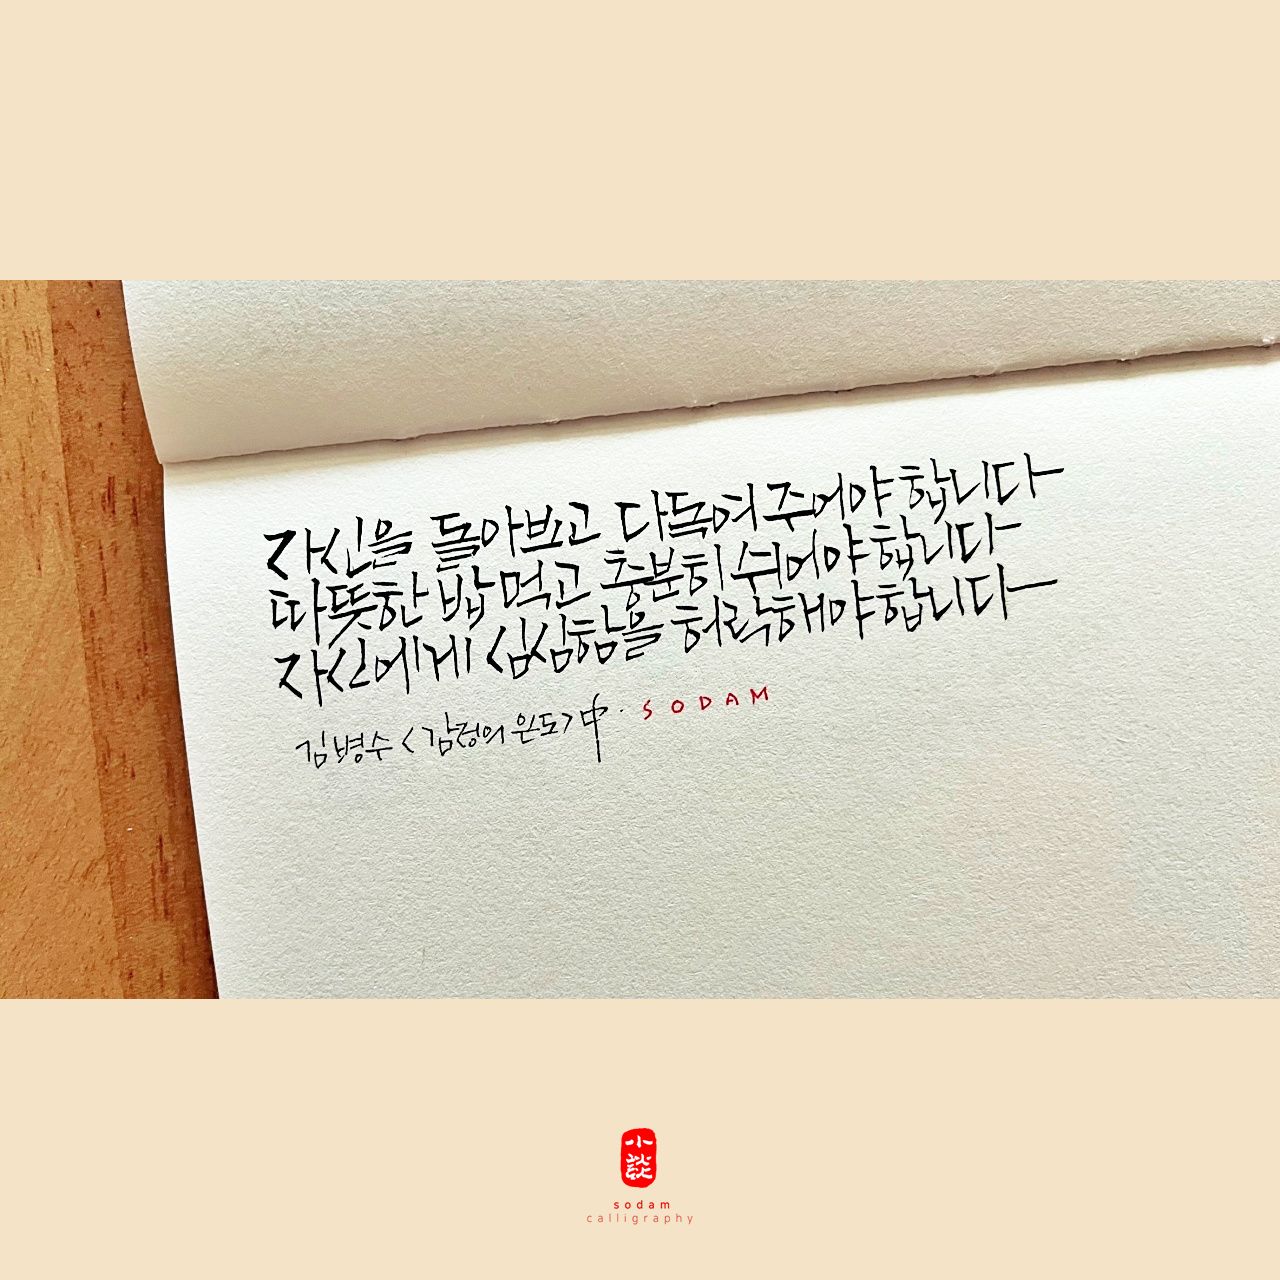 자신을 돌아보고 다독여 주어야 합니다
따뜻한 밥 먹고 충분히 쉬어야 합니다
자신에게 심심함을 허락해야 합니다
김병수 <감정의 온도> 中 · SODAM
小談
sodam
calligraphy